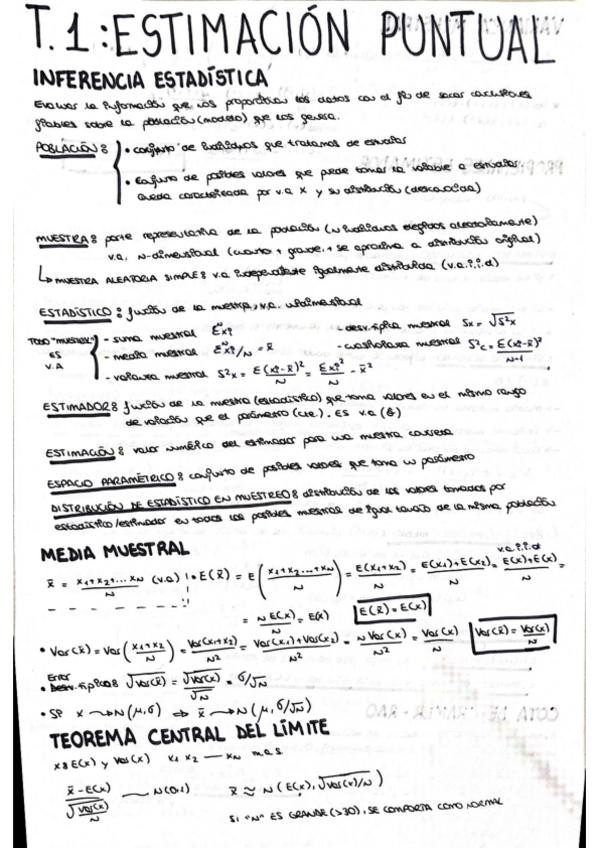 T.1: ESTIMACIÓN PUNTUAL
INFERENCIA ESTADÍSTICA
Evaluar la información que nos proporcionan los datos con el fin de sacar conclusiones
fiables sobre la población (modelo) que los genera.
POBLACIÓN: • conjunto de individuos que tratamos de estudiar
• Conjunto de posibles valores que puede tomar la variable a estudiar.
Queda caracterizada por v.a X y su distribución (desconocida)
MUESTRA: parte representativa de la población (N individuos elegidos aleatoriamente)
v.a. N-dimensional (cuanto + grande, + se aproxima a distribución original)
↳ MUESTRA ALEATORIA SIMPLE: v.a independiente igualmente distribuida (v.a.i.i.d)
ESTADÍSTICO: función de la muestra, v.a. unidimensional
TODO "MUESTRAL" ES V.A
- suma muestral Σxi - desv. típica muestral Sx = √S²x
- media muestral Σxi/N = x̄ - cuasivarianza muestral S²c = Σ(xi-x̄)²/N-1
- varianza muestral S²x = Σ(xi-x̄)²/N = Σxi²/N - x̄²
ESTIMADOR: función de la muestra (estadístico) que toma valores en el mismo rango
de variación que el parámetro (cte.). ES v.a (θ̂)
ESTIMACIÓN: valor numérico del estimador para una muestra concreta
ESPACIO PARAMÉTRICO: conjunto de posibles valores que toma un parámetro
DISTRIBUCIÓN DE ESTADÍSTICO EN MUESTREO: distribución de los valores tomados por
estadístico/estimador en todas las posibles muestras de igual tamaño de la misma población
MEDIA MUESTRAL
v.a.i.i.d
x̄ = x1+x2+...xN/N (v.a) • E(x̄) = E(x1+x2...+xN/N) = E(x1+x2)/N = E(x1)+E(x2)/N = E(x)+E(x)/N =
= N E(x)/N = E(x) E(x̄) = E(x)
• Var(x̄) = Var(x1+x2/N) = Var(x1+x2)/N² = Var(x1)+Var(x2)/N² = N Var(x)/N² = Var(x)/N Var(x̄) = Var(x)/N
Error
• Desv. típica: √Var(x̄) = √Var(x)/√N = σ/√N
• Si X ⟶ N(μ,σ) ⇒ x̄ ⟶ N(μ, σ/√N)
TEOREMA CENTRAL DEL LÍMITE
X: E(x) y Var(x) x1 x2 — xN m.a.s.
x̄-E(x)/√Var(x)/N ⟶ N(0,1) x̄ ≈ N(E(x), √Var(x)/N)
SI "N" ES GRANDE (>30), SE COMPORTA COMO NORMAL